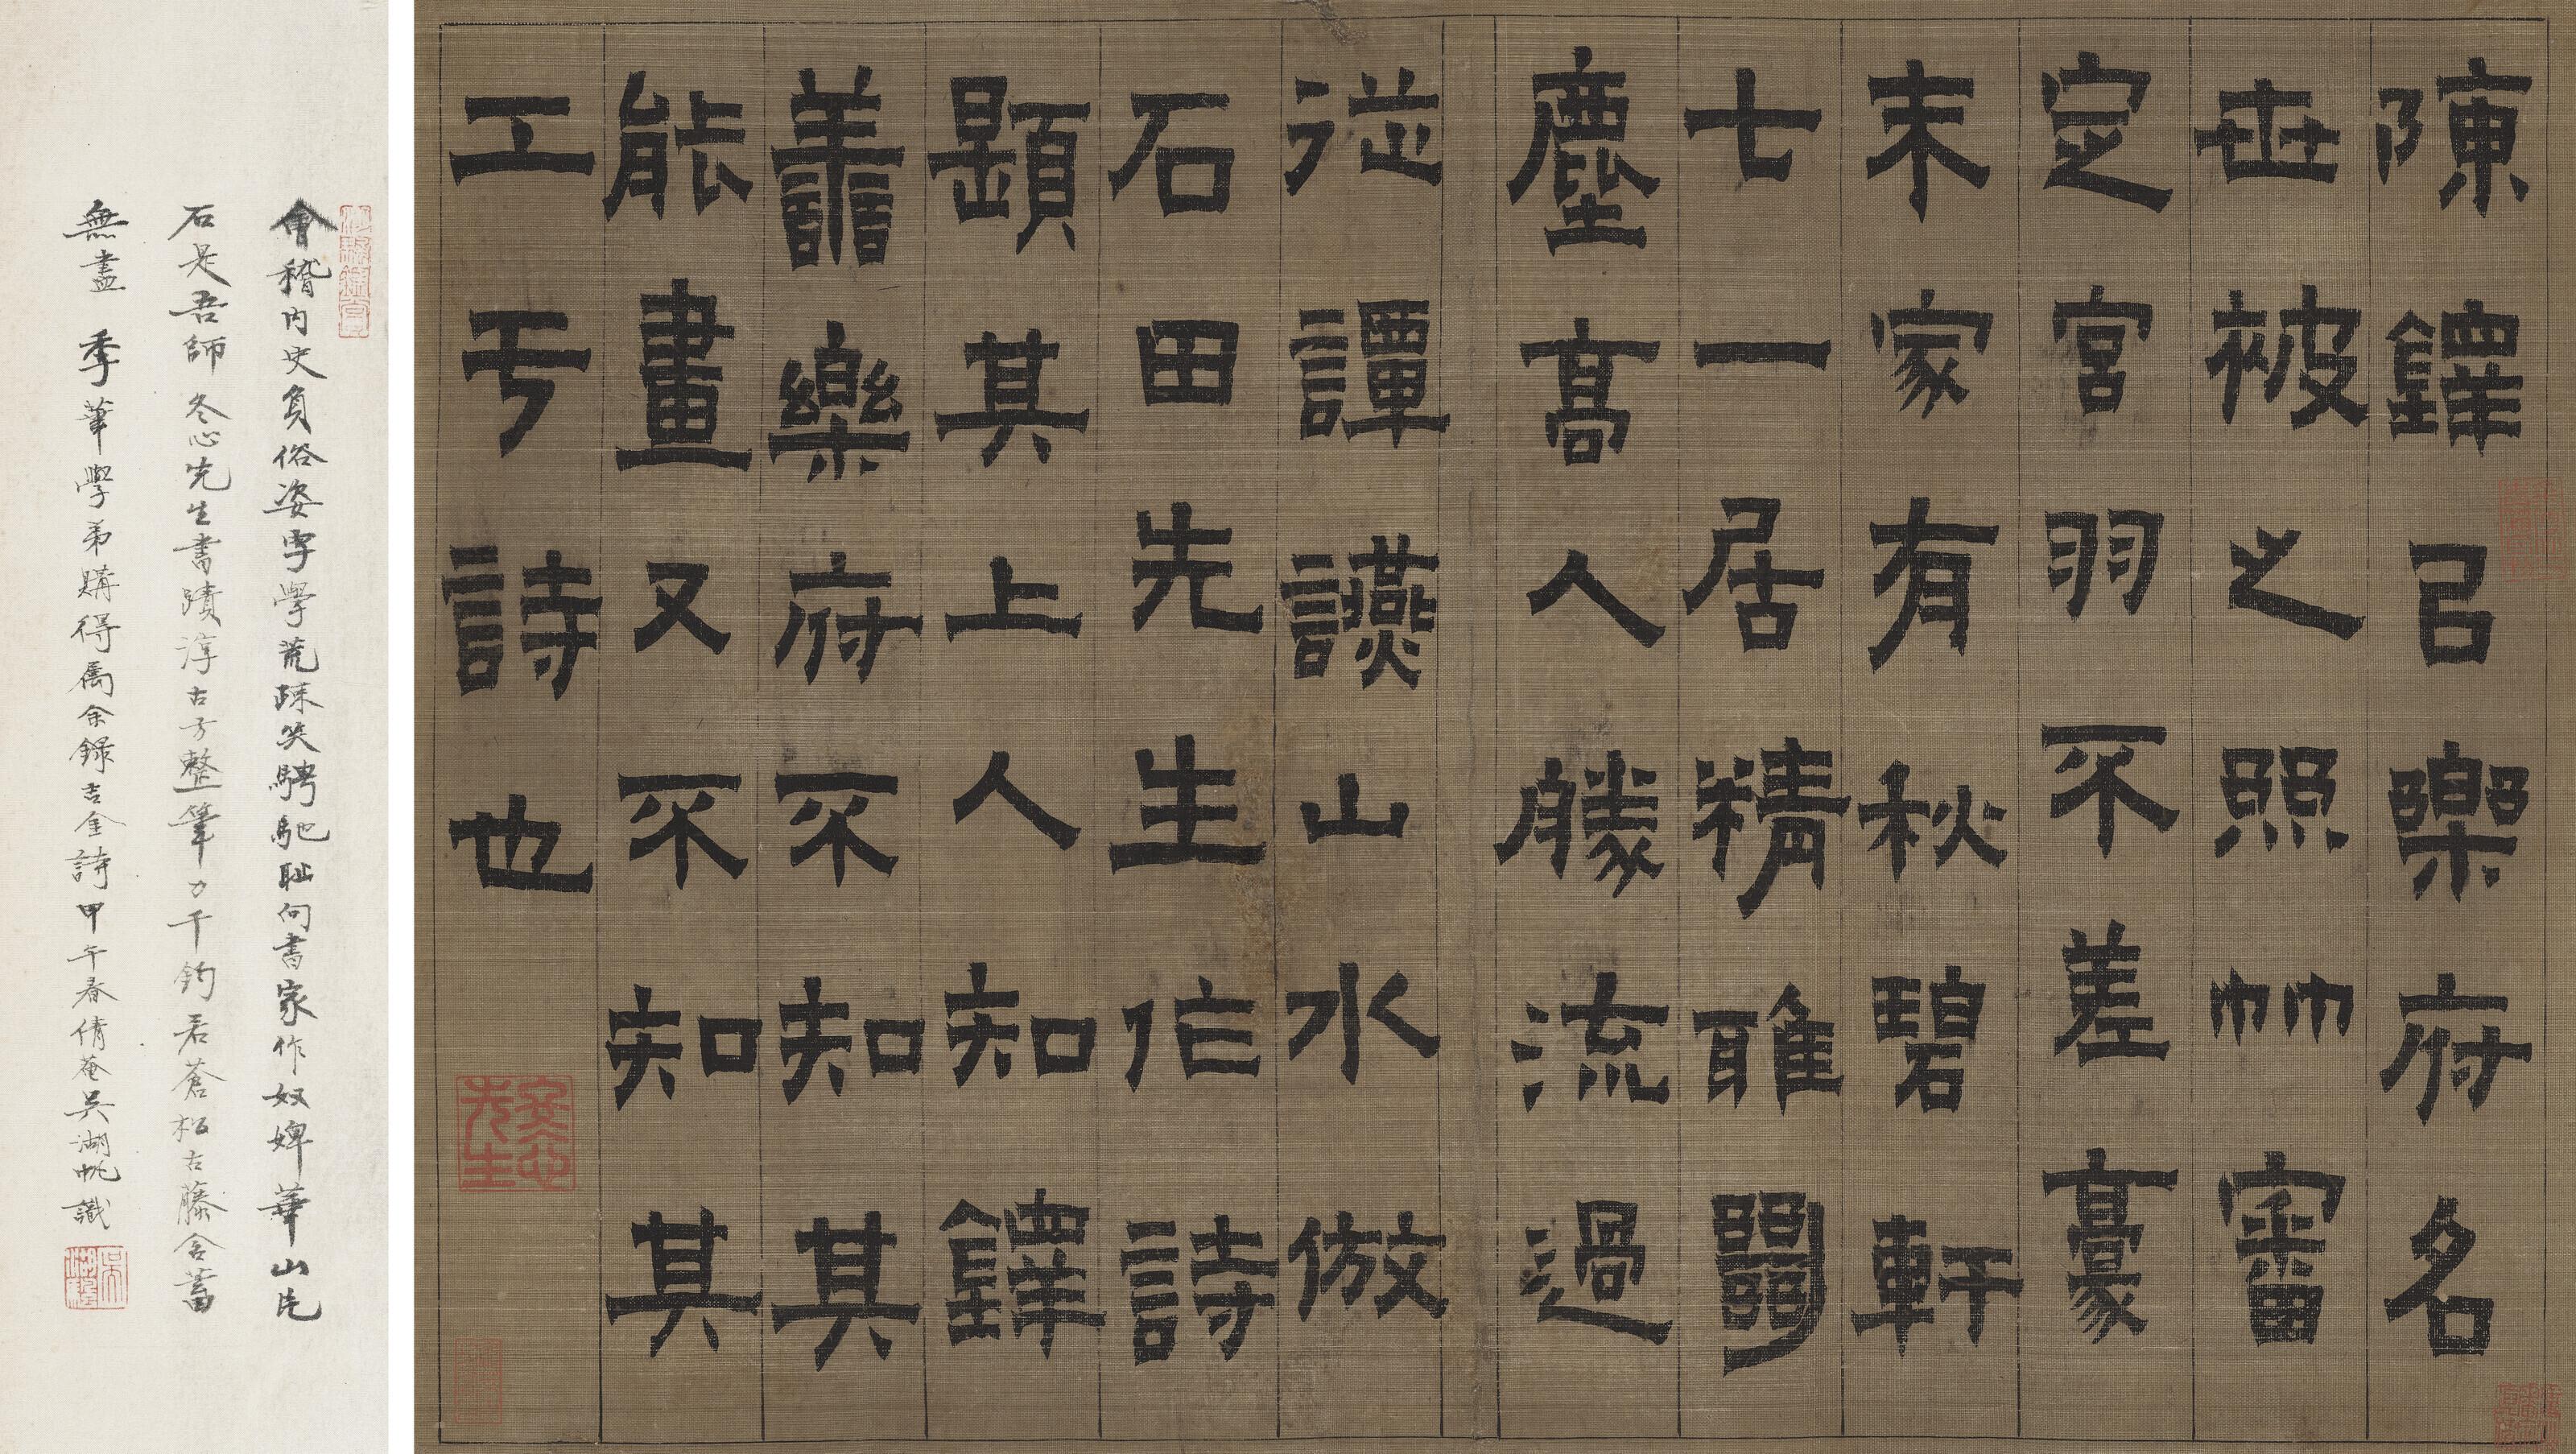 陳鐸以樂府名
世被之照竹審
定宮羽不差豪
末家有秋碧軒
七一居精雅闢
塵高人勝流過
從譚讌山水倣
石田先生作詩
題其上人知鐸
善樂府不知其
能畫又不知其
工于詩也
冬心先生
會稽內史負俗姿字學荒疎笑騁馳恥向書家作奴婢華山片
石是吾師 冬心先生書蹟淳古方整筆力千鈞若蒼松古藤含蓄
無盡 季華學弟購得屬余錄吉金詩甲午春倩菴吳湖帆識